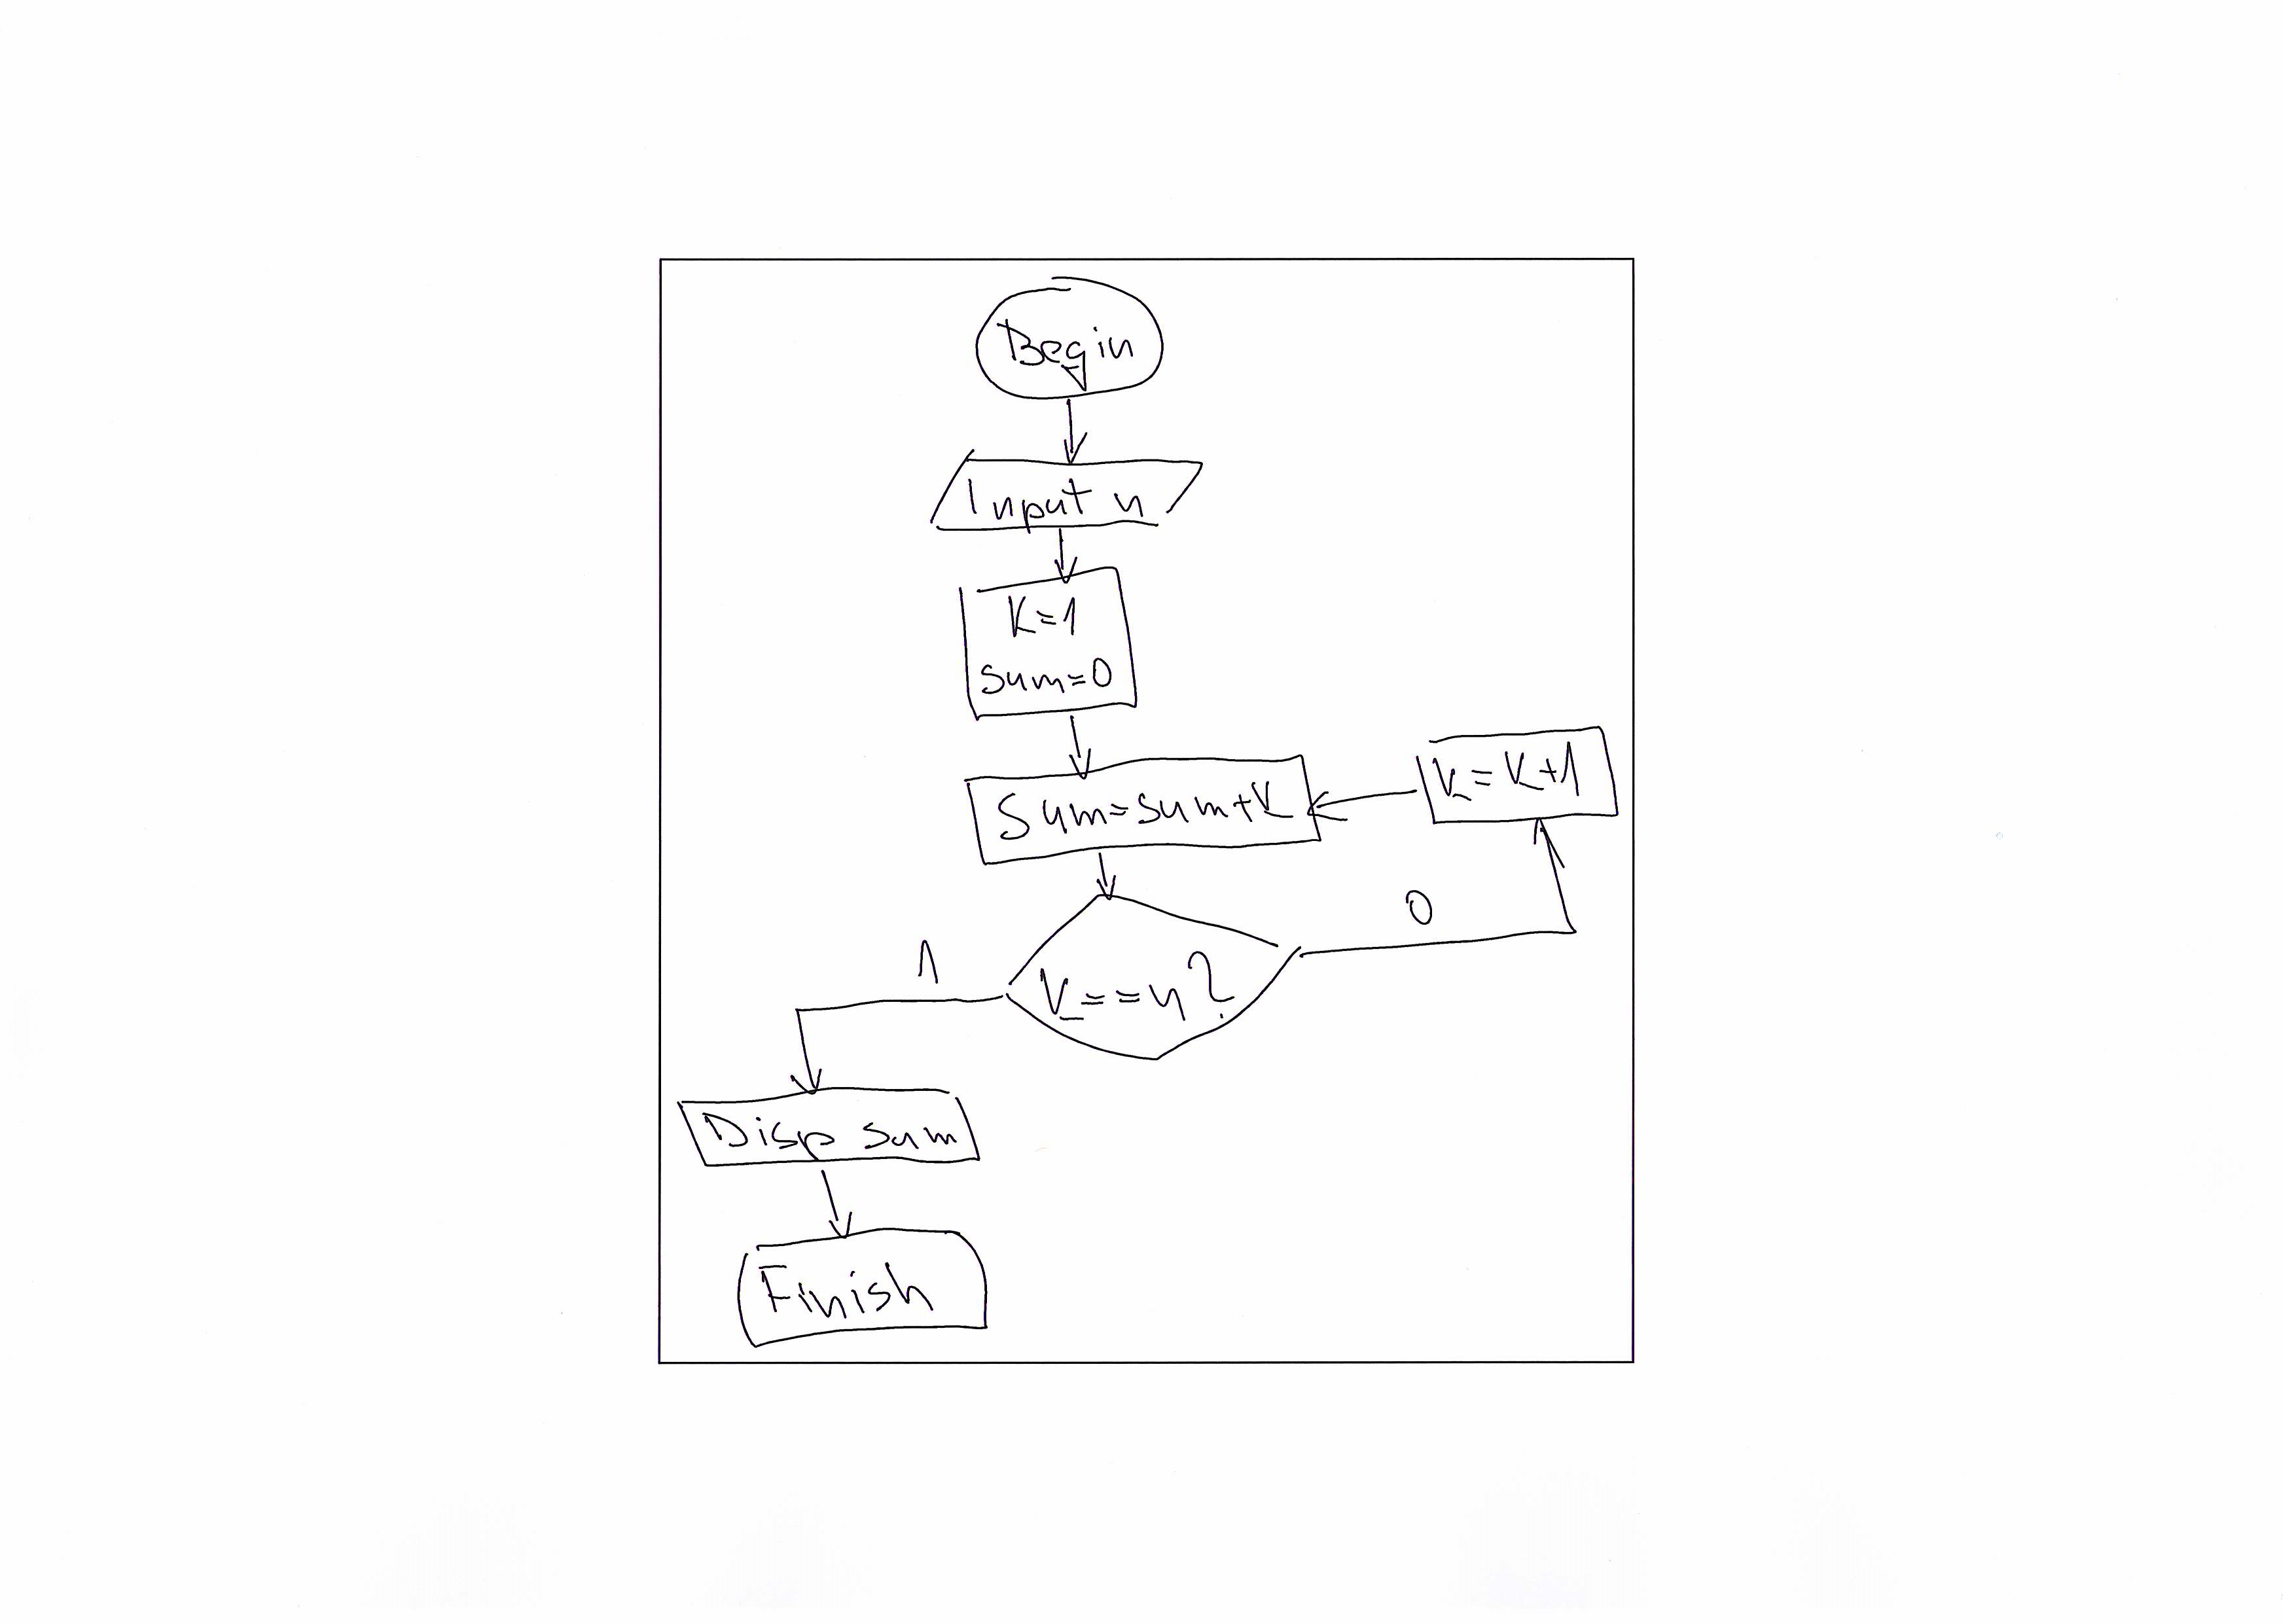 Begin
Input n
K=1
sum=0
Sum=sum+K
K=K+1
0
K==n?
1
Disp sum
Finish